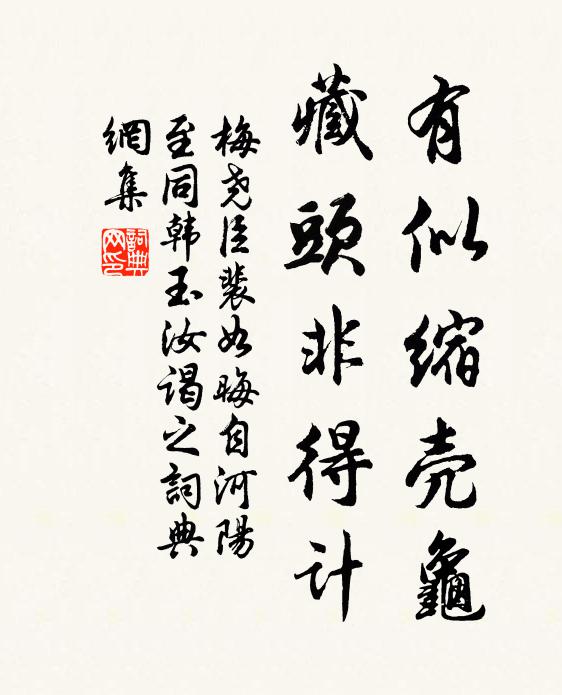 有似缩壳龜
藏頭非得计
梅尧臣裴如晦自河陽
至同韩玉汝谒之詞典
網集
詞典網印